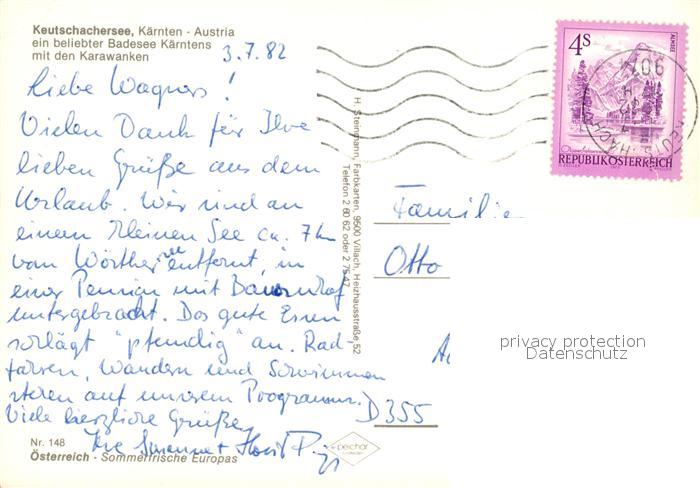 Keutschachersee, Kärnten - Austria
ein beliebter Badesee Kärntens
mit den Karawanken
3.7.82
Liebe Wagners!
Vielen Dank für Ihre
lieben Grüße aus dem
Urlaub. Wir sind an
einem kleinen See ca. 7 km
vom Wörthersee entfernt, in
einer Pension mit Bauernhof
untergebracht. Das gute Essen
schlägt "pfundig" an. Rad-
fahren, Wandern und Schwimmen
stehen auf unserem Programm.
Viele herzliche Grüße
Ihre Susanne + Horst P.
Nr. 148
Österreich - Sommerfrische Europas
H. Steinmann, Farbkarten, 9500 Villach, Heizhausstraße 52
Telefon 2 60 62 oder 2 75 47
pechar
4 S
ALMSEE
REPUBLIK ÖSTERREICH
906
Familie
Otto
D 355
privacy protection
Datenschutz